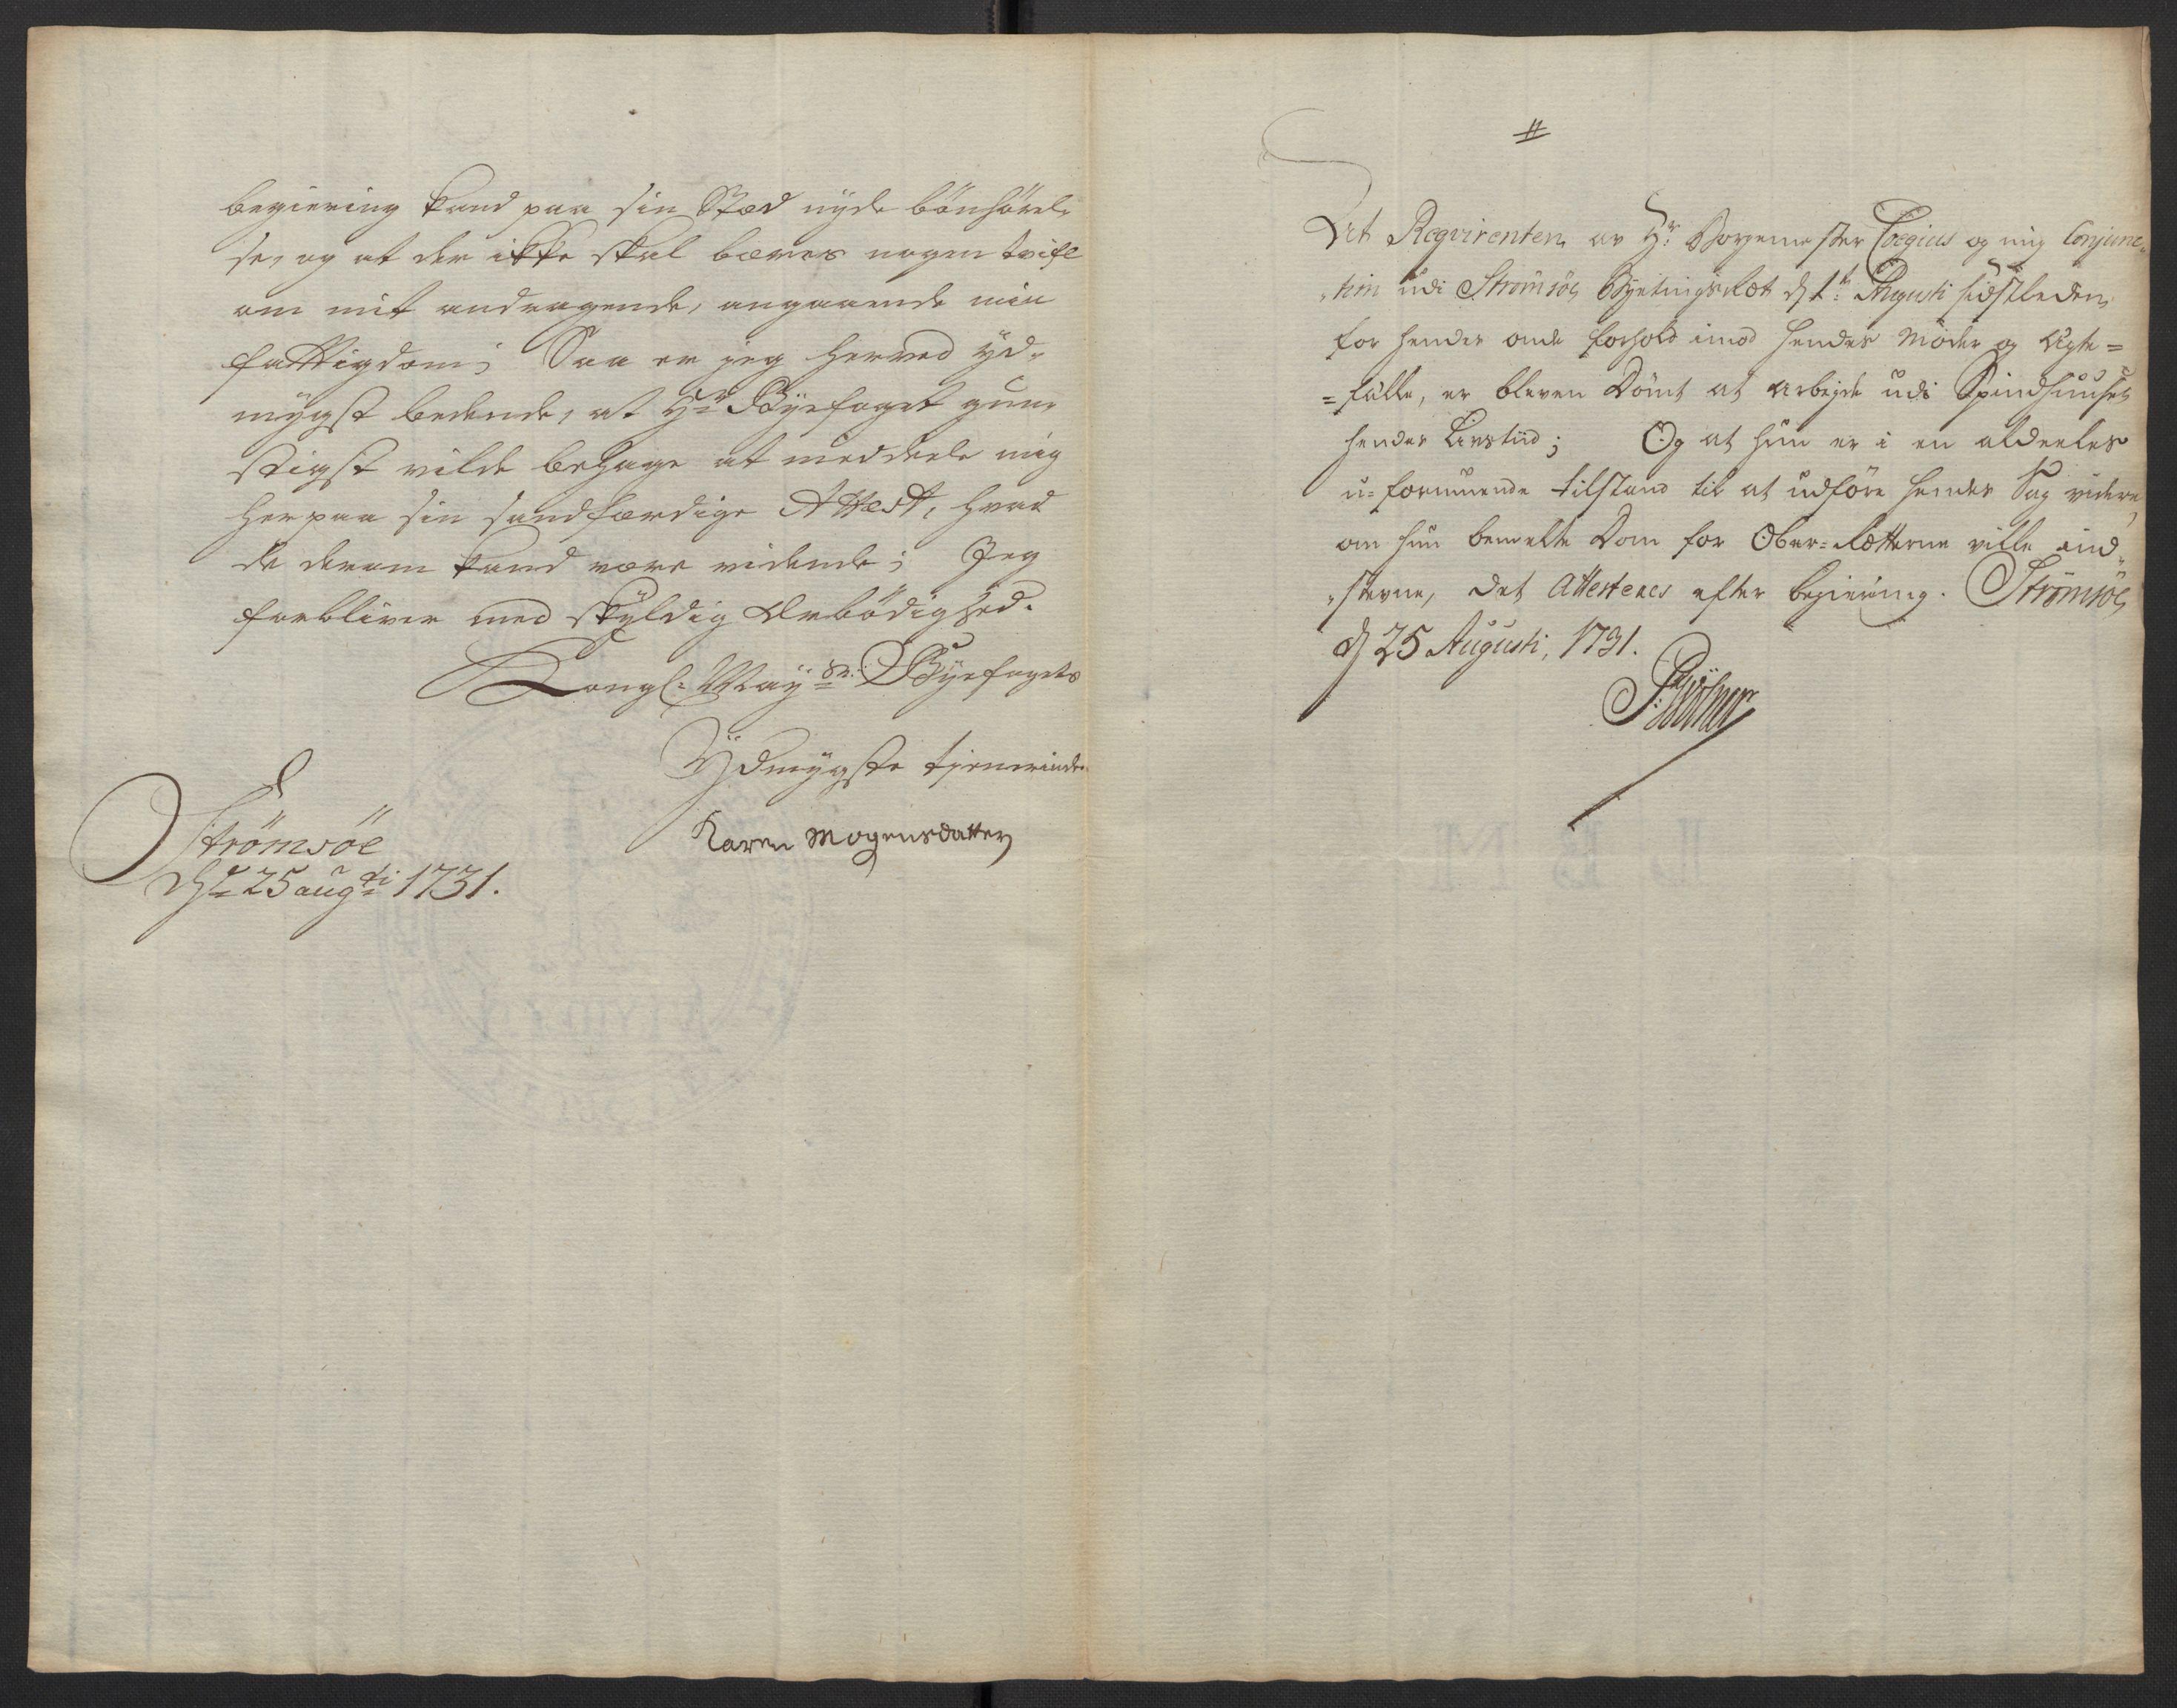 begiering kand paa sin Stæd nyde bönhörel-
se, og at der ikke skal bæres nogen tvifl
om mit andragende, angaaende min
fattigdom; Saa er jeg herved yd-
mygst bedende, at Hr Byefoget gun-
stigst vilde behage at meddeele mig
herpaa sin sandfærdige Attest, hvad
de derom kand være vidende; Jeg
forbliver med skyldig Ærbödighed.
Kongl: Mayst: Byefogets
Ydmygste tjenerinde
Karen Mogensdatter
Strömsöe
d 25 augti 1731.
Att Reqvirenten av Hr: Borgemester Coegius og mig Conjunc-
-tim udi Strömsöe Byetings Ræt d 1te Augusti sidstleden,
for hendes onde forhold imod hendes Moder og Ægte=
=fælle, er bleven Dömt at arbejde udi Spindhuuset
hendes Livstiid; Og at hun er i en aldeeles
u=formuende tilstand til at udföre hendes Sag videre,
om hun bemelte Dom for Ober=Rætterne ville ind-
-stevne, Det Attesteres efter begiering. Strömsöe
d 25 Augusti, 1731.